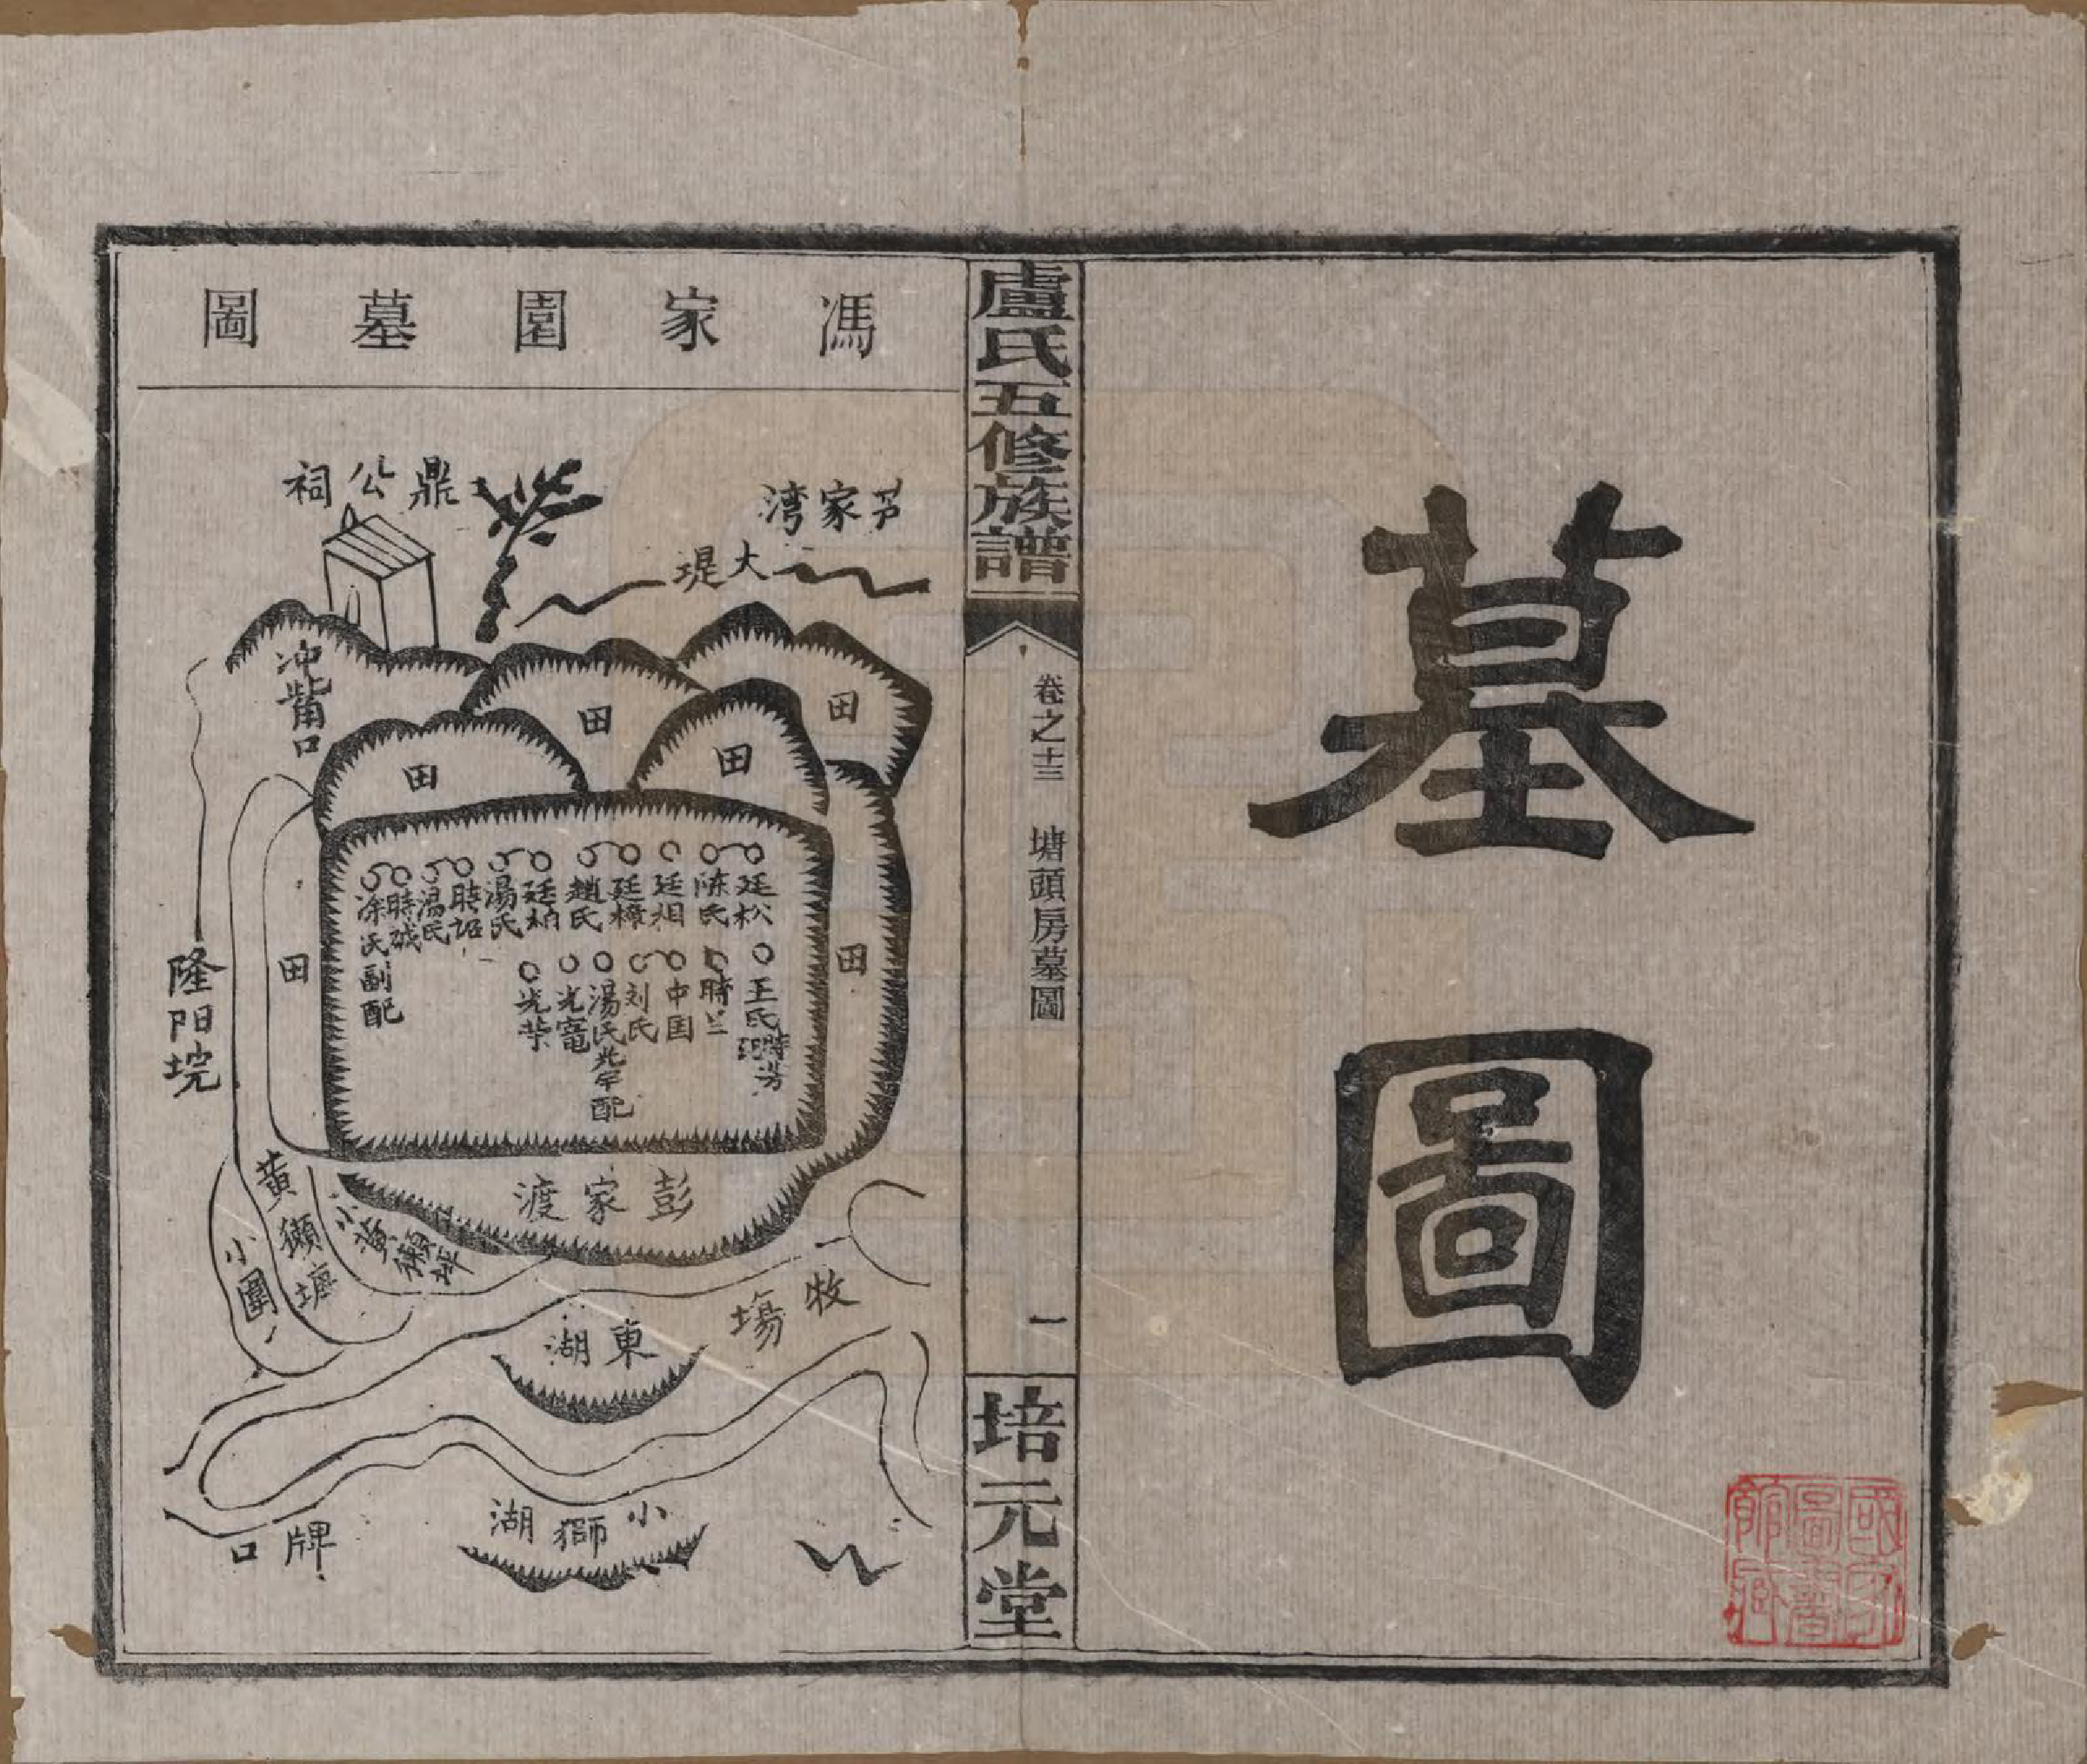 墓圖
國家圖書館藏
盧氏五修族譜
卷之十三
塘頭房墓圖
一
培元堂
馮家園墓圖
芦家湾
大堤
鼎公祠
冲觜口
田
田
田
田
田
田
隆阳垸
廷松
陈氏
廷相
廷樟
趙氏
廷柏
湯氏
時詔
湯氏
時瑊
涂氏副配
王氏時芳配
時兰
中国
刘氏
湯氏光年配
光竃
光荣
彭家渡
黄獺塘
小圍
牧場
東湖
小獅湖
牌口